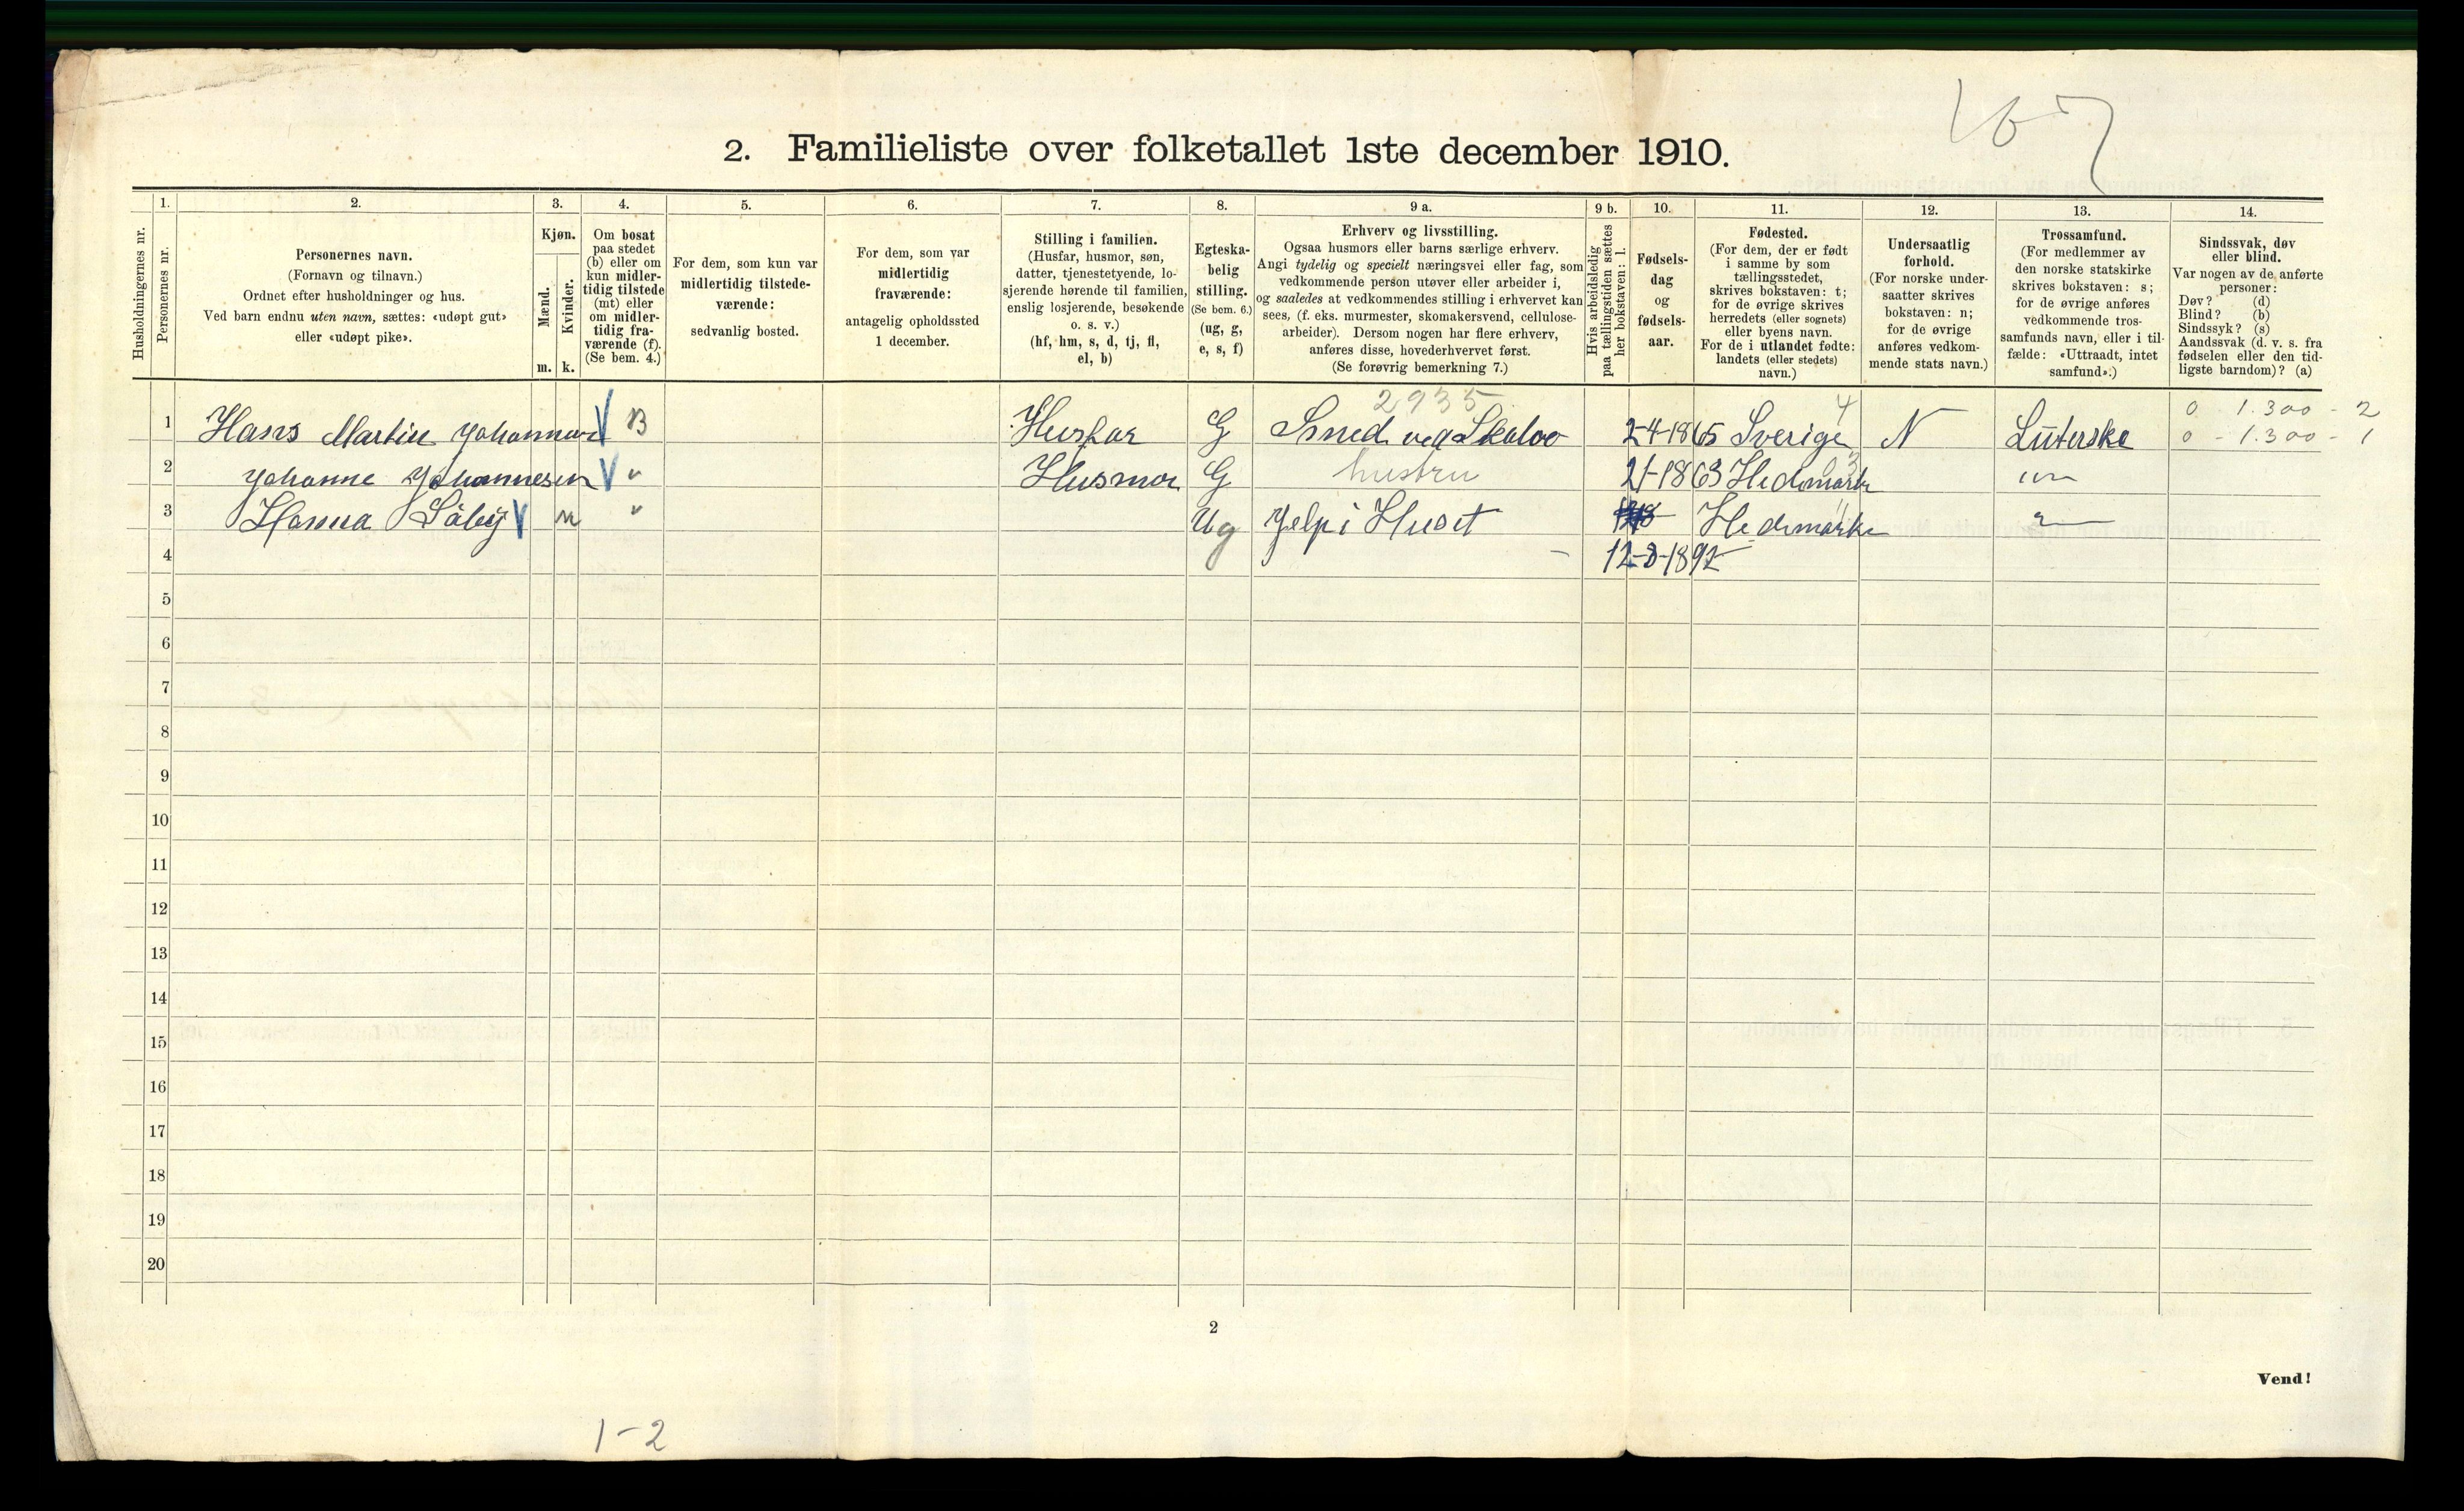 167
2. Familieliste over folketallet 1ste december 1910.
Husholdningernes nr.
1.
Personernes nr.
2.
Personernes navn.
(Fornavn og tilnavn.)
Ordnet efter husholdninger og hus.
Ved barn endnu uten navn, sættes: «udøpt gut»
eller «udøpt pike».
3.
Kjøn.
Mænd.
m.
Kvinder.
k.
4.
Om bosat
paa stedet
(b) eller om
kun midler-
tidig tilstede
(mt) eller
om midler-
tidig fra-
værende (f).
(Se bem. 4.)
5.
For dem, som kun var
midlertidig tilstede-
værende:
sedvanlig bosted.
6.
For dem, som var
midlertidig
fraværende:
antagelig opholdssted
1 december.
7.
Stilling i familien.
(Husfar, husmor, søn,
datter, tjenestetyende, lo-
sjerende hørende til familien,
enslig losjerende, besøkende
o. s. v.)
(hf, hm, s, d, tj, fl,
el, b)
8.
Egteska-
belig
stilling.
(Se bem. 6.)
(ug, g,
e, s, f)
9 a.
Erhverv og livsstilling.
Ogsaa husmors eller barns særlige erhverv.
Angi tydelig og specielt næringsvei eller fag, som
vedkommende person utøver eller arbeider i,
og saaledes at vedkommendes stilling i erhvervet kan
sees, (f. eks. murmester, skomakersvend, cellulose-
arbeider). Dersom nogen har flere erhverv,
anføres disse, hovederhvervet først.
(Se forøvrig bemerkning 7.)
9 b.
Hvis arbeidsledig
paa tællingstiden sættes
her bokstaven: l.
10.
Fødsels-
dag
og
fødsels-
aar.
11.
Fødested.
(For dem, der er født
i samme by som
tællingsstedet,
skrives bokstaven: t;
for de øvrige skrives
herredets (eller sognets)
eller byens navn.
For de i utlandet fødte:
landets (eller stedets)
navn.)
12.
Undersaatlig
forhold.
(For norske under-
saatter skrives
bokstaven: n;
for de øvrige
anføres vedkom-
mende stats navn.)
13.
Trossamfund.
(For medlemmer av
den norske statskirke
skrives bokstaven: s;
for de øvrige anføres
vedkommende tros-
samfunds navn, eller i til-
fælde: «Uttraadt, intet
samfund».)
14.
Sindssvak, døv
eller blind.
Var nogen av de anførte
personer:
Døv? (d)
Blind? (b)
Sindssyk? (s)
Aandssvak (d. v. s. fra
fødselen eller den tid-
ligste barndom)? (a)
2935 4 0 1.300 - 2
1 Hans Martin Johannesen B Husfar G Smed veg Skaloo 2-4-1865 Sverige N Luterske 0 - 1.300 - 1
2 Johanne Johannesen " Husmor G hustru 21-1863 Hedemarke
3 Hanna Säby " Ug Jelp i Huset Hedemarke
4 12-8-1892
5
6
7
8
9
10
11
12
13
14
15
16
17
18
19
20
2
Vend!
1-2